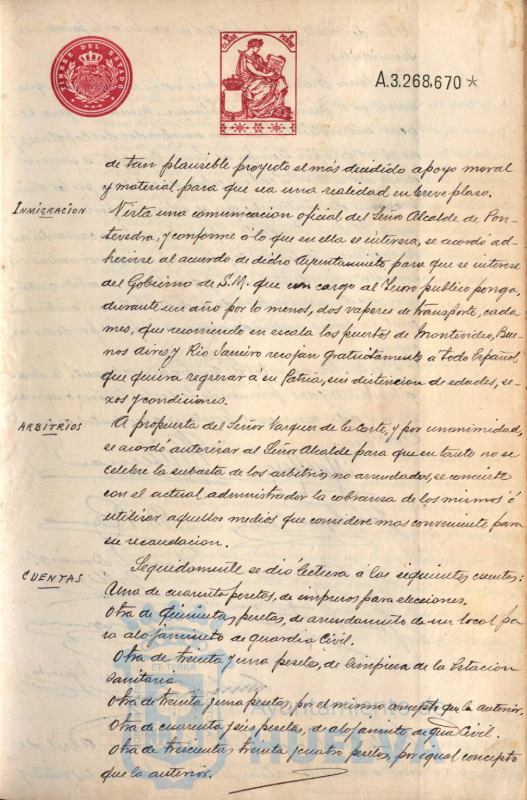 TIMBRE DEL ESTADO
A.3.268,670
de tan plausible proyecto el más decidido apoyo moral
y material para que sea una realidad en breve plazo.
INMIGRACION
Vista una comunicacion oficial del Señor Alcalde de Pon-
tevedra, y conforme á lo que en ella se interesa, se acordó ad-
herirse al acuerdo de dicho Ayuntamiento para que se interese
del Gobierno de S.M. que con cargo al Tesoro publico ponga,
durante un año por lo menos, dos vapores de transporte, cada
mes, que recorriendo en escala los puertos de Montevideo, Bue-
nos Aires, y Rio Janeiro recojan gratuitamente á todo Español
que quiera regresar á su Patria, sin distincion de edades, se-
xos y condiciones.
ARBITRIOS
A propuesta del Señor Vazquez de la Corte, y por unanimidad,
se acordó autorizar al Señor Alcalde para que en tanto no se
celebre la subasta de los arbitrios no arrendados, se concierte
con el actual administrador la cobranza de los mismos ó
utilizar aquellos medios que considere mas conveniente para
su recaudacion.
CUENTAS
Seguidamente se dió lectura á las siguientes cuentas:
Una de cuarenta pesetas, de impresos para elecciones.
Otra de Quinientas pesetas, de arrendamiento de un local pa
ra alojamiento de guardia Civil.
Otra de treinta y una pesetas, de limpieza de la Estacion
sanitaria
Otra de treinta y una pesetas, por el mismo concepto que la anterior.
Otra de cuarenta y seis pesetas, de alojamiento de Guardia Civil.
Otra de trescientas treinta y cuatro pesetas, por igual concepto
que la anterior.
Ayuntamiento de
HUELVA